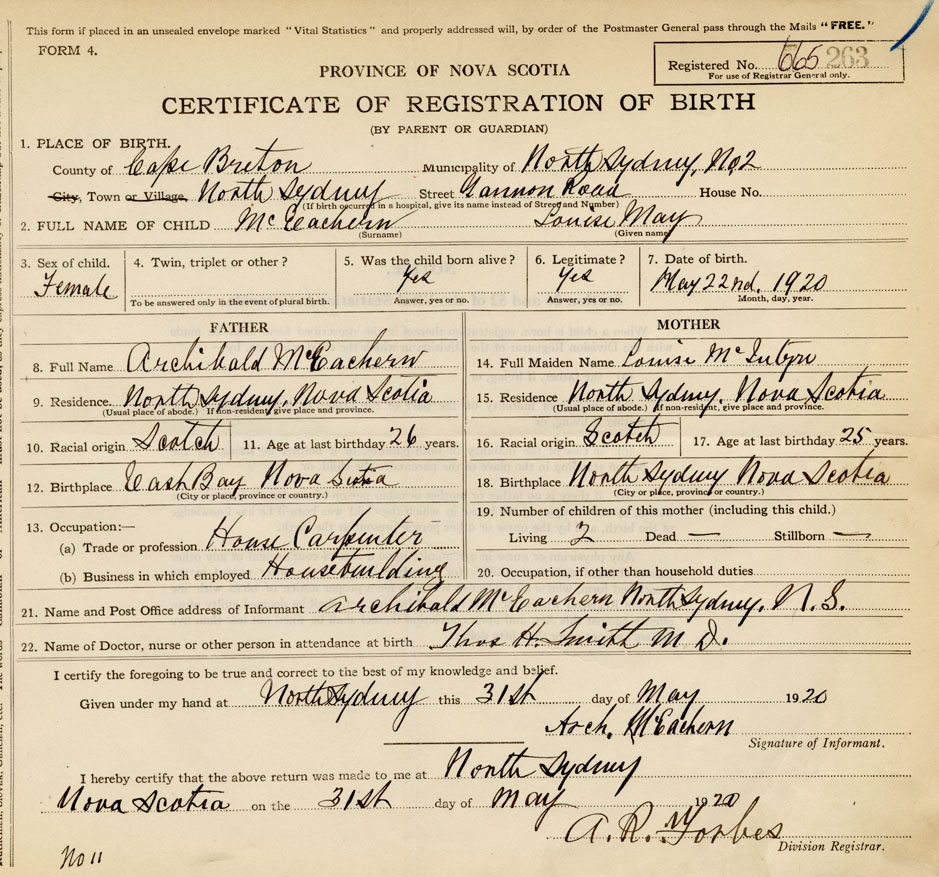 This form if placed in an unsealed envelope marked "Vital Statistics" and properly addressed will, by order of the Postmaster General pass through the Mails "FREE."
FORM 4.
Registered No. 665 263
For use of Registrar General only.
PROVINCE OF NOVA SCOTIA
CERTIFICATE OF REGISTRATION OF BIRTH
(BY PARENT OR GUARDIAN)
1. PLACE OF BIRTH.
County of Cape Breton Municipality of North Sydney, No2
City, Town or Village, North Sydney Street Gannon Road House No.
(If birth occurred in a hospital, give its name instead of Street and Number)
2. FULL NAME OF CHILD McEachern Louise May
(Surname) (Given name)
3. Sex of child. 4. Twin, triplet or other? 5. Was the child born alive? 6. Legitimate? 7. Date of birth.
Female Yes Yes May 22nd. 1920
To be answered only in the event of plural birth. Answer, yes or no. Answer, yes or no. Month, day, year.
FATHER
8. Full Name Archibald McEachern
9. Residence. North Sydney, Nova Scotia
(Usual place of abode.) If non-resident, give place and province.
10. Racial origin Scotch 11. Age at last birthday 26 years.
12. Birthplace East Bay Nova Scotia
(City or place, province or country.)
13. Occupation:—
(a) Trade or profession House Carpenter
(b) Business in which employed Housebuilding
MOTHER
14. Full Maiden Name Louise McIntyre
15. Residence North Sydney, Nova Scotia
(Usual place of abode.) If non-resident, give place and province.
16. Racial origin Scotch 17. Age at last birthday 25 years.
18. Birthplace North Sydney Nova Scotia
(City or place, province or country.)
19. Number of children of this mother (including this child.)
Living 2 Dead — Stillborn —
20. Occupation, if other than household duties
21. Name and Post Office address of Informant Archibald McEachern North Sydney. N.S.
22. Name of Doctor, nurse or other person in attendance at birth Thos H. Smith M D.
I certify the foregoing to be true and correct to the best of my knowledge and belief.
Given under my hand at North Sydney this 31st day of May 1920
Arch. McEachern
Signature of Informant.
I hereby certify that the above return was made to me at North Sydney
Nova Scotia on the 31st day of May 1920
A. R. Forbes
Division Registrar.
No 11